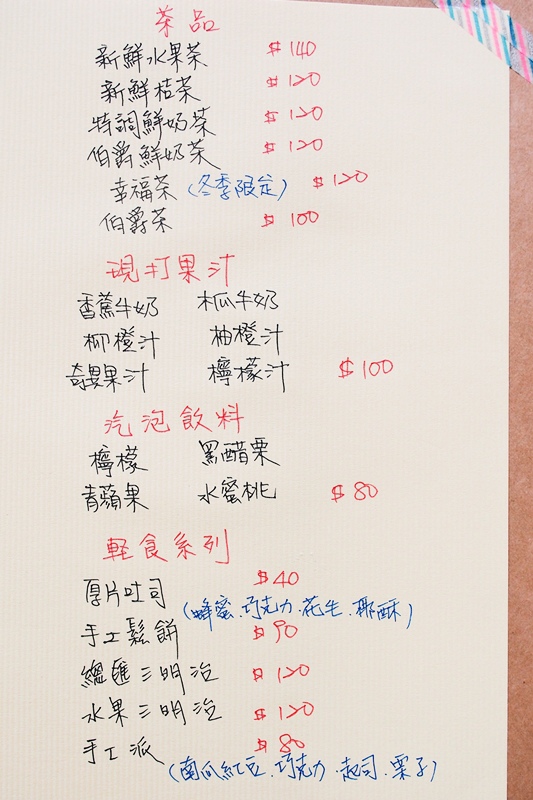 茶品
新鮮水果茶 $140
新鮮桔茶 $120
特調鮮奶茶 $120
伯爵鮮奶茶 $120
幸福茶(冬季限定) $120
伯爵茶 $100
現打果汁
香蕉牛奶 木瓜牛奶
柳橙汁 柚橙汁
奇異果汁 檸檬汁 $100
汽泡飲料
檸檬 黑醋栗
青蘋果 水蜜桃 $80
軽食系列
厚片吐司 $40
(蜂蜜.巧克力.花生.耶酥)
手工鬆餅 $90
總匯三明治 $120
水果三明治 $120
手工派 $80
(南瓜紅豆.巧克力.起司.栗子)